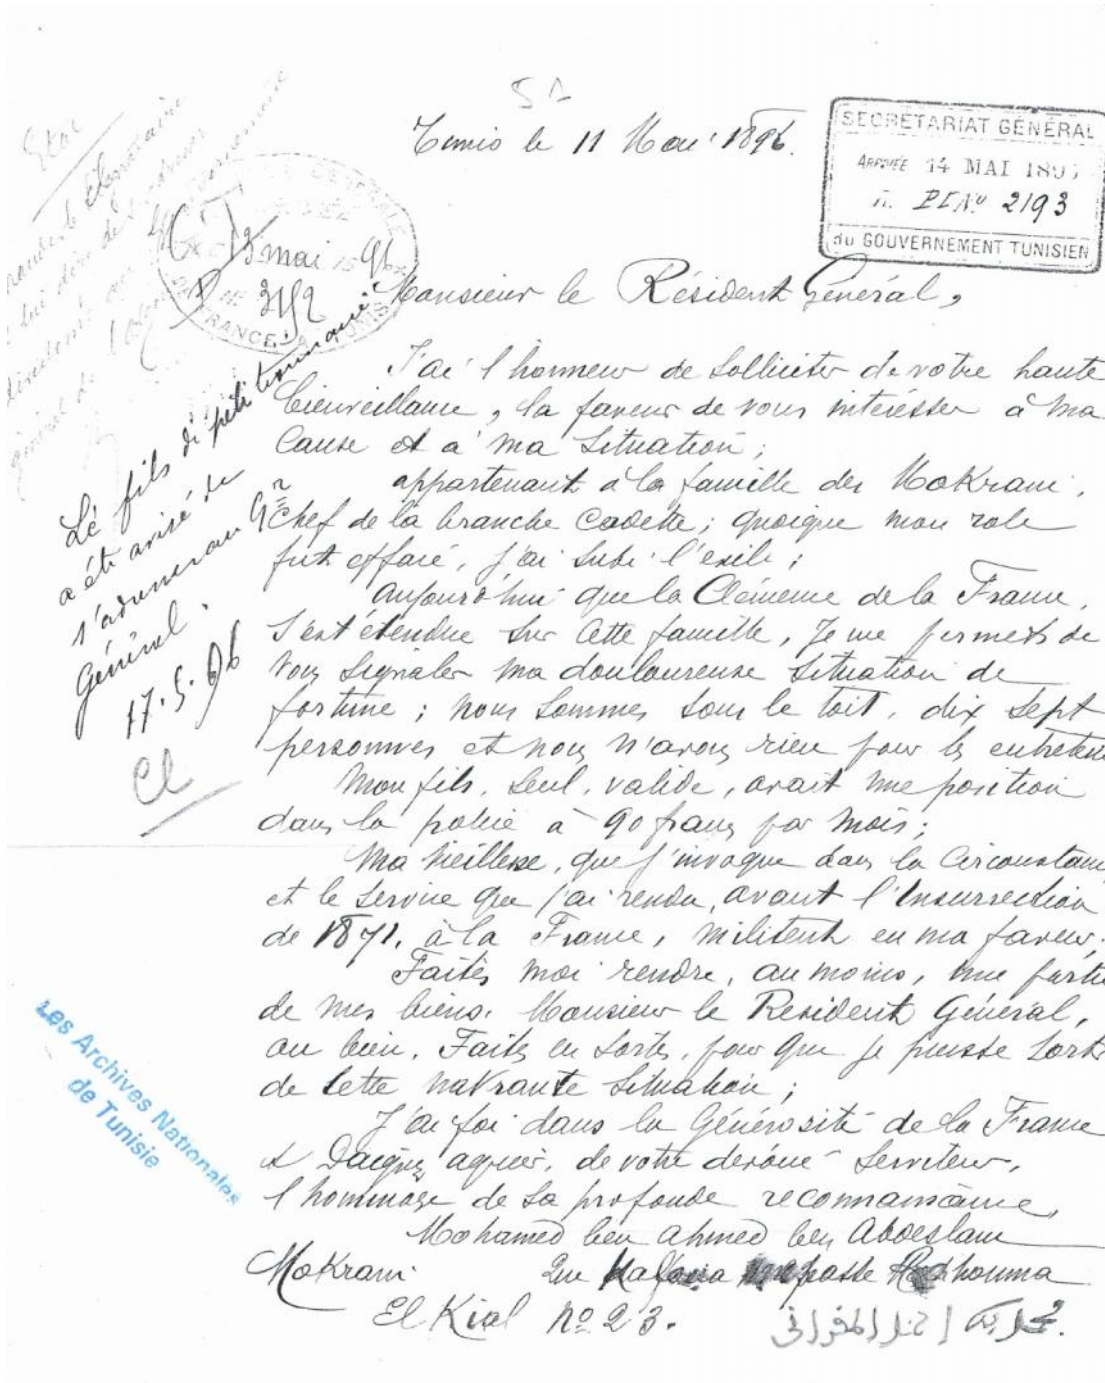 Tunis le 11 Mai 1896.
SECRÉTARIAT GÉNÉRAL
ARRIVÉE 14 MAI 189
N° 2193
du GOUVERNEMENT TUNISIEN
13 mai 96
FRANCE A TUNIS
Monsieur le Résident Général,
J'ai l'honneur de solliciter de votre haute
bienveillance, la faveur de vous intéresser à ma
Cause et a ma situation;
appartenant à la famille des Mokrani,
Chef de la branche Cadette; quoique mon role
fut effacé, j'ai subi l'exile;
aujourd'hui que la Clémence de la France,
s'est étendue sur cette famille, Je me permets de
vous signaler ma douloureuse situation de
fortune; nous sommes sous le toit, dix sept
personnes et nous n'avons rien pour les entretenir
Mon fils, seul, valide, avait une position
dans la police à 90 francs par mois;
Ma vieillesse, que j'invoque dans la Circonstance
et le service que j'ai rendu, avant l'Insurrection
de 1871, à la France, militent en ma faveur;
Faites moi rendre, au moins, une partie
de mes biens, Monsieur le Résident Général,
ou bien, Faites en sorte, pour que je puisse sortir
de cette navrante situation;
J'ai foi dans la Générosité de la France
et Daignez agréer, de votre dévoué serviteur,
l'hommage de sa profonde reconnaissance,
Mohamed ben ahmed ben Abdeslam
Mokrani
El Kial no 23.
المقراني
Le fils du pétitionnaire
a été avisé de
s'adresser au Gr
Général.
17.5.96
Les Archives Nationales
de Tunisie